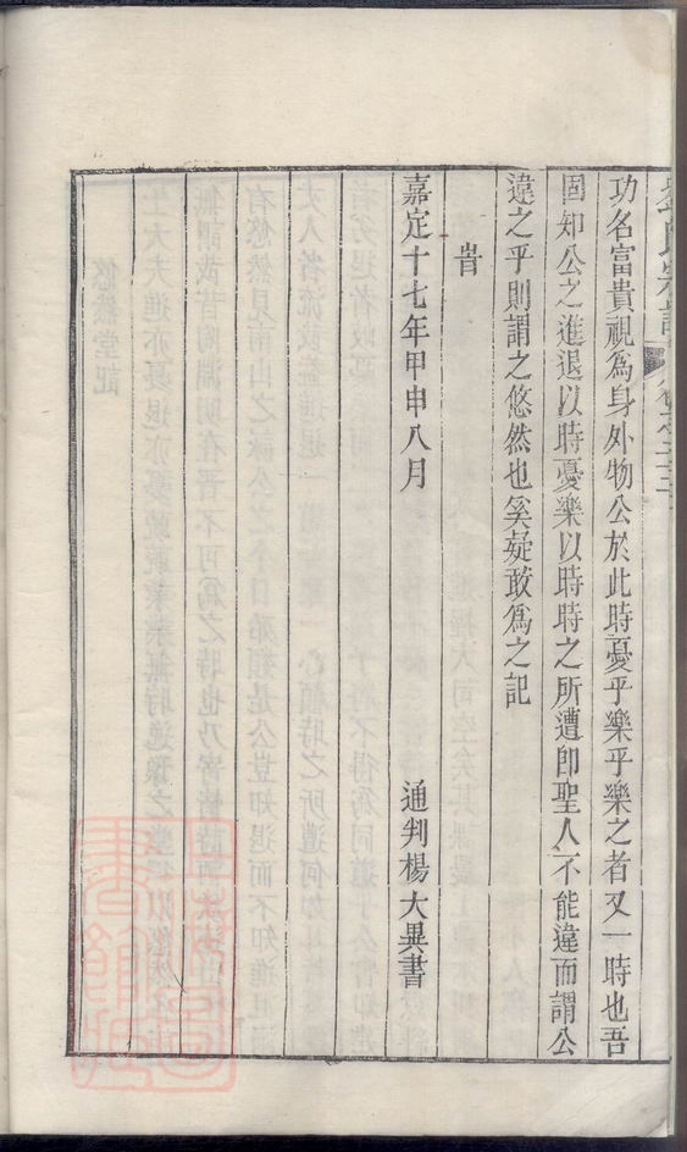 功名富貴視爲身外物公於此時憂乎樂乎樂之者又一時也吾
固知公之進退以時憂樂以時時之所遭卽聖人不能違而謂公
違之乎則謂之悠然也奚疑敢爲之記
旹
嘉定十七年甲申八月 通判楊大異書